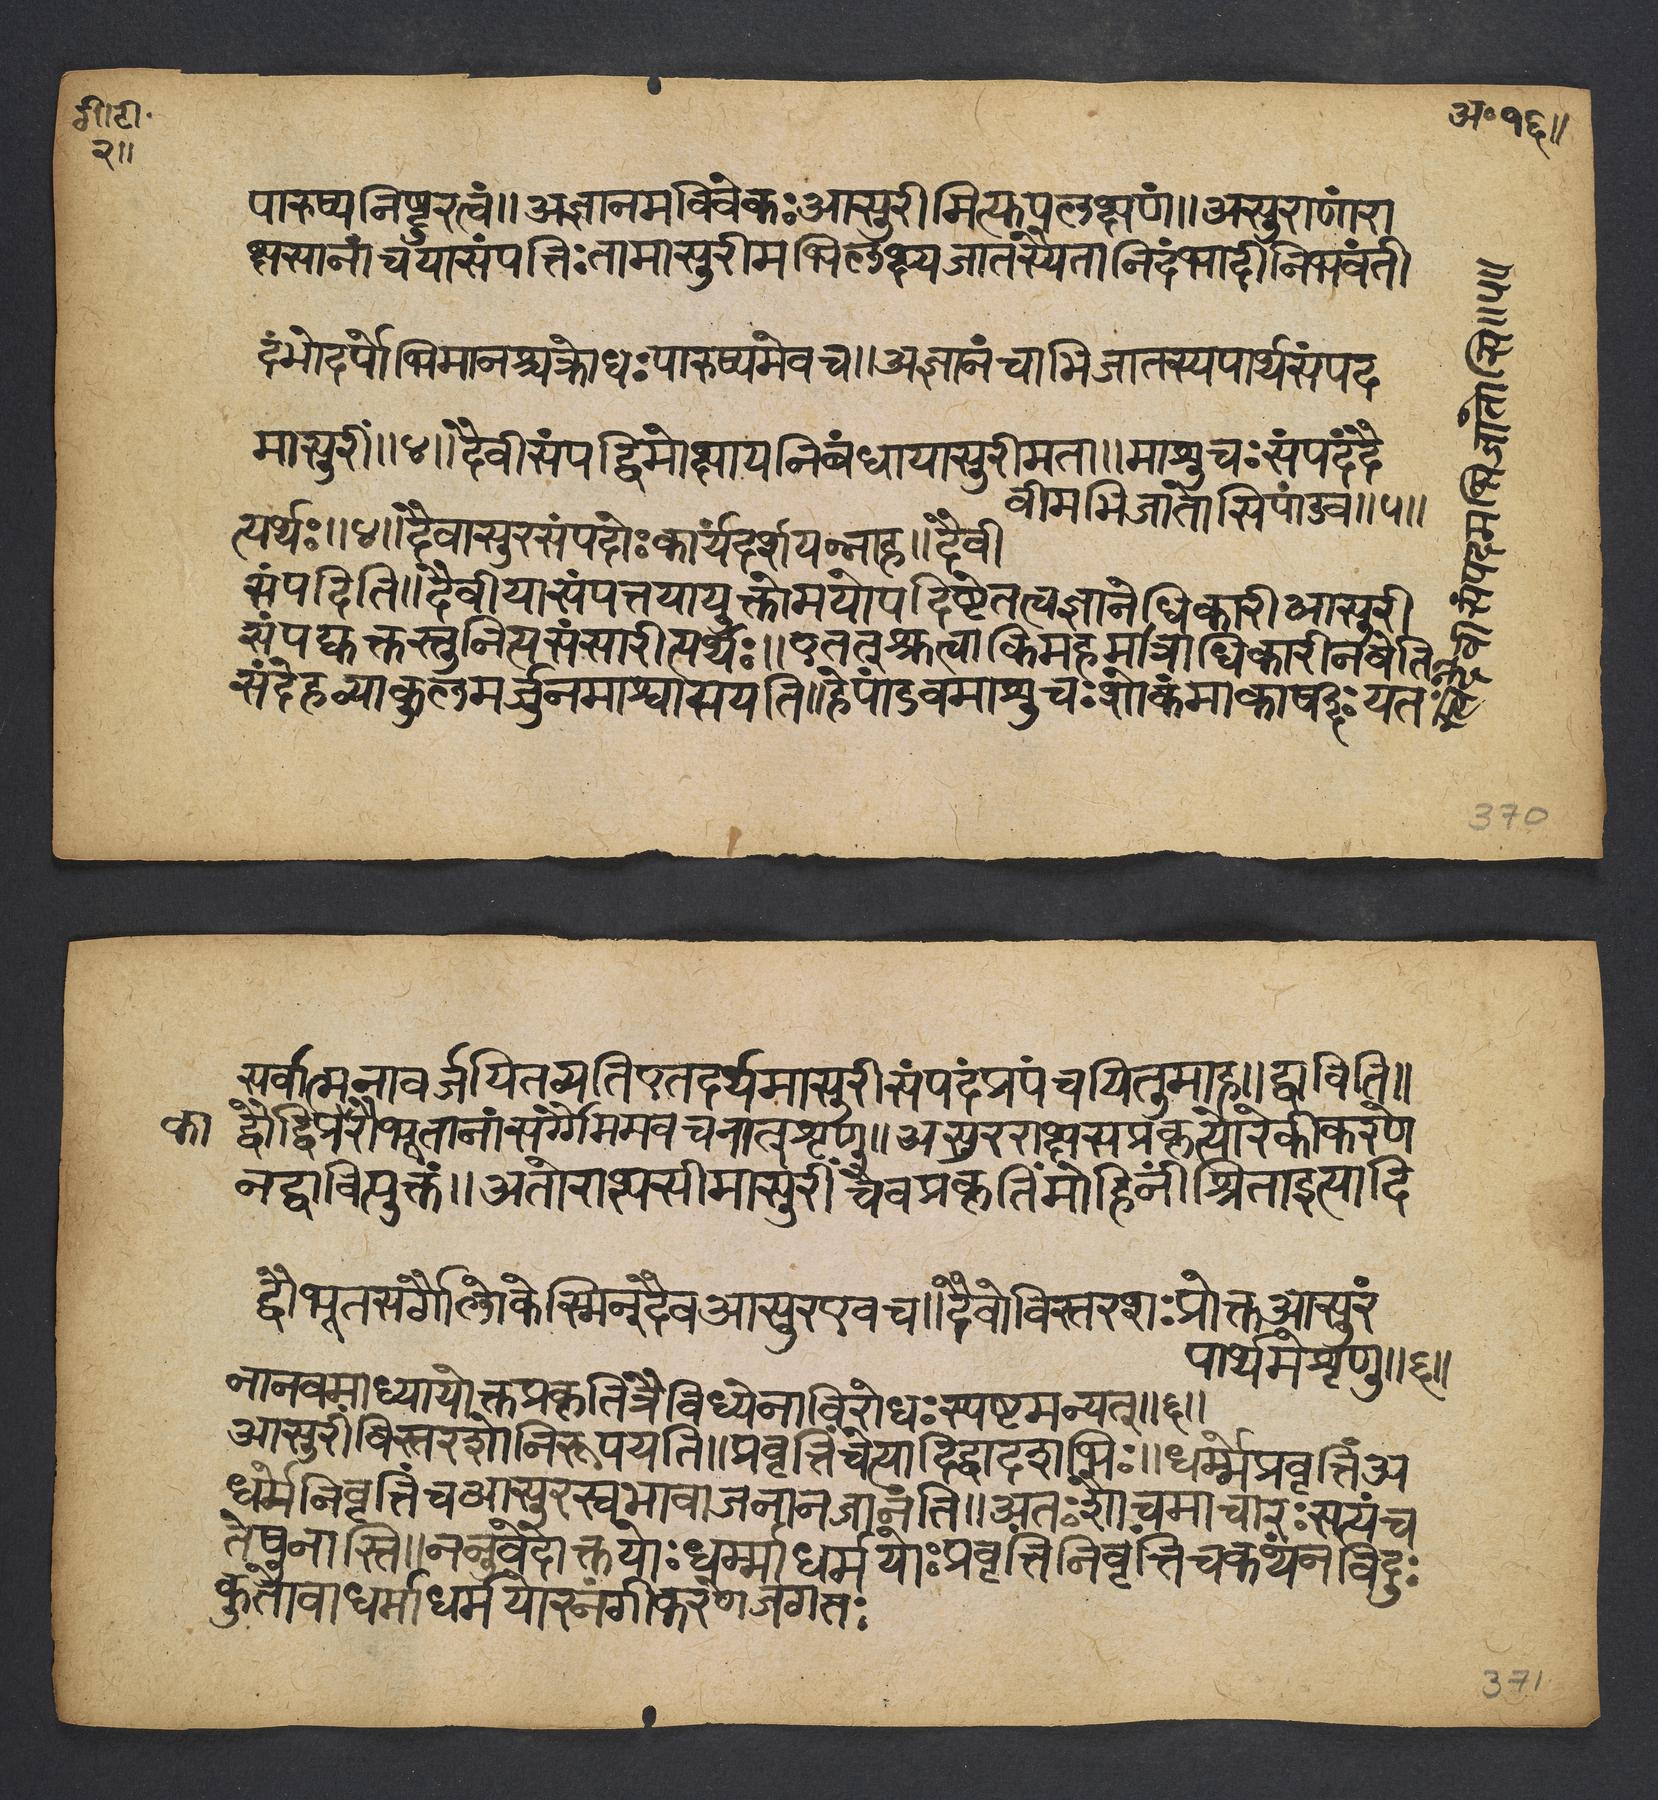 गी।टी॰
२॥
अ॰१६॥
पारुष्यनिष्टुरत्वं॥अज्ञानमविवेकः आसुरीमित्युपलक्षणं॥असुराणांरा
क्षसानांचयासंपत्तिःतामासुरीमभिलक्ष्यजातस्यैतानिदंभादीनिभवंती
दंभोदर्पोभिमानश्चक्रोधःपारुष्यमेवच॥अज्ञानंचाभिजातस्यपार्थसंपद
मासुरीं॥४॥दैवीसंपद्विमोक्षायनिबंधायासुरीमता॥माशुचःसंपदंदै
वीमभिजातोसिपांडव॥५॥
त्यर्थः॥४॥दैवासुरसंपदोःकार्यंदर्शयन्नाह॥दैवी
संपदिति॥दैवीयासंपत्तयायुक्तोमयोपदिष्टेतत्वज्ञानेधिकारीआसुरी
संपद्युक्तस्तुनित्यसंसारीत्यर्थः॥एतत्श्रुत्वाकिमहमत्राधिकारीनवेति
संदेहव्याकुलमर्जुनमाश्वासयति॥हेपांडवमाशुचःशोकंमाकार्षीःयतः
संपदमभिजातोसि॥५॥
370
सर्वात्मनावर्जयितव्यतिएतदर्थमासुरीसंपदंप्रपंचयितुमाह॥द्वाविति॥
का
द्वौद्विप्रेरौभूतानांसर्गोमेमवचनात्शृणु॥असुरराक्षसप्रकृत्योरेकीकरणे
नद्वावित्युक्तं॥अतोराक्षसीमासुरींचैवप्रकृतिंमोहिनींश्रिताइत्यादि
द्वौभूतसर्गौलोकेस्मिन्दैवआसुरएवच॥दैवोविस्तरशःप्रोक्तआसुरं
पार्थमेशृणु॥६॥
नानवमाध्यायोक्तप्रकृतित्रैविध्येनाविरोधःस्पष्टमन्यत्॥६॥
आसुरींविस्तरशोनिरूपयति॥प्रवृत्तिंचेत्यादिद्वादशभिः॥धर्म्मेप्रवृत्तिंअ
धर्मेनिवृत्तिंचआसुरस्वभावाजनानजानंति॥अतःशौचमाचारःसत्यंच
तेषुनास्ति॥ननुवेदोक्तयोःधर्म्माधर्मयोःप्रवृत्तिंनिवृत्तिंचकथंनविदुः
कुतोवाधर्माधर्मयोरनंगीकरणेजगतः
371